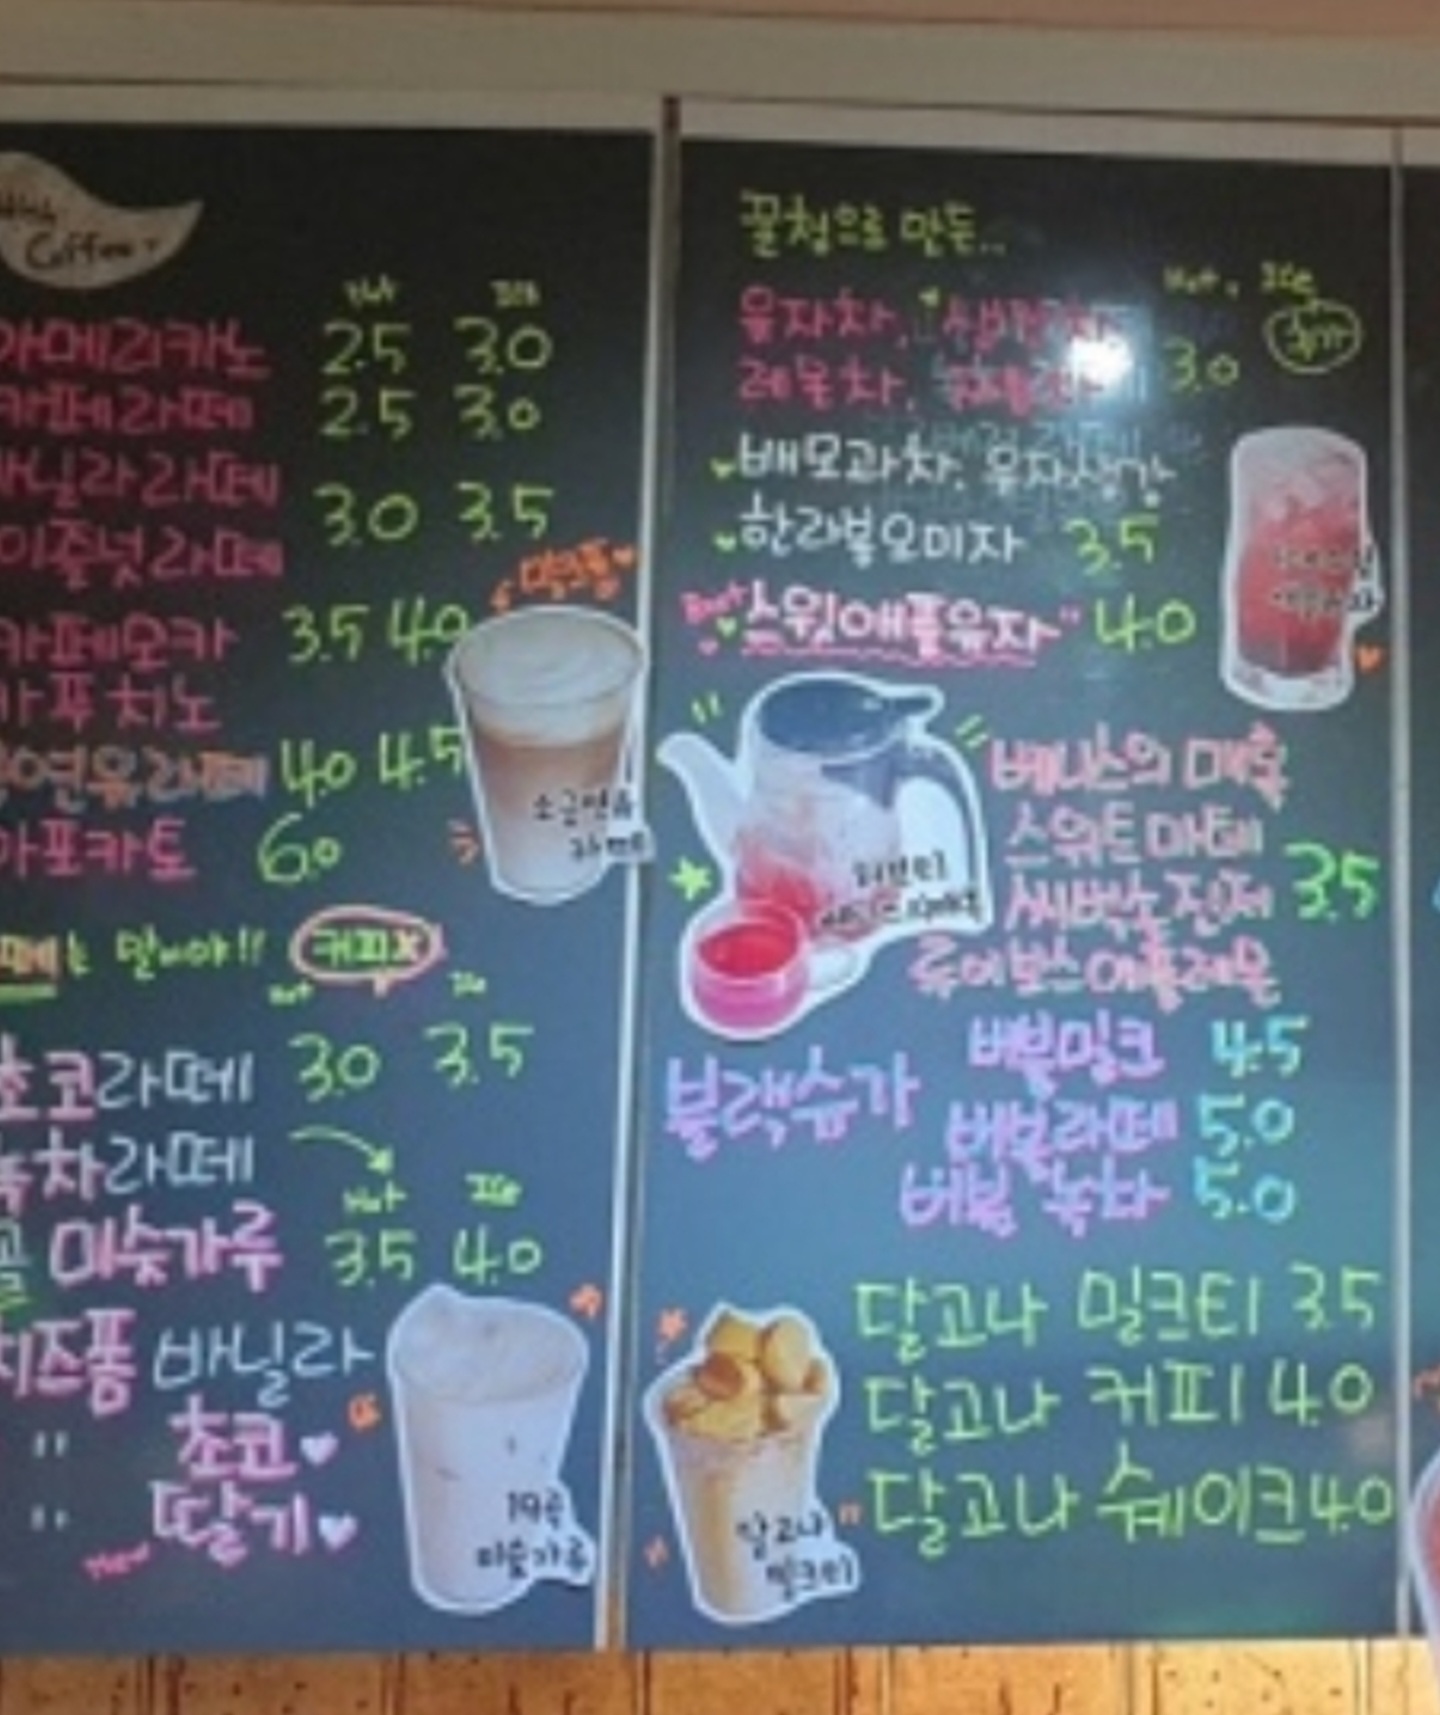 with
Coffee
Hot Ice
아메리카노 2.5 3.0
카페라떼 2.5 3.0
바닐라라떼
헤이즐넛라떼 3.0 3.5
카페모카 3.5 4.0
카푸치노
연유라떼 4.0 4.5
아포카토 6.0
소금연유
라떼
라떼는 말이야!! 커피X
Hot Ice
초코라떼 3.0 3.5
녹차라떼
Hot Ice
미숫가루 3.5 4.0
치즈폼 바닐라
" 초코
" 딸기
New
19곡
미숫가루
꿀청으로 만든..
Hot, Ice
유자차, 생강차,
레몬차, 3.0 추가
배모과차, 유자생강
한라봉오미자 3.5
Best "스윗애플유자" 4.0
베니스의 매혹
스위트마테
씨벅손진저 3.5
루이보스애플레몬
블랙슈가 버블밀크 4.5
버블라떼 5.0
버블 녹차 5.0
달고나 밀크티 3.5
달고나 커피 4.0
달고나 쉐이크 4.0
달고나
밀크티